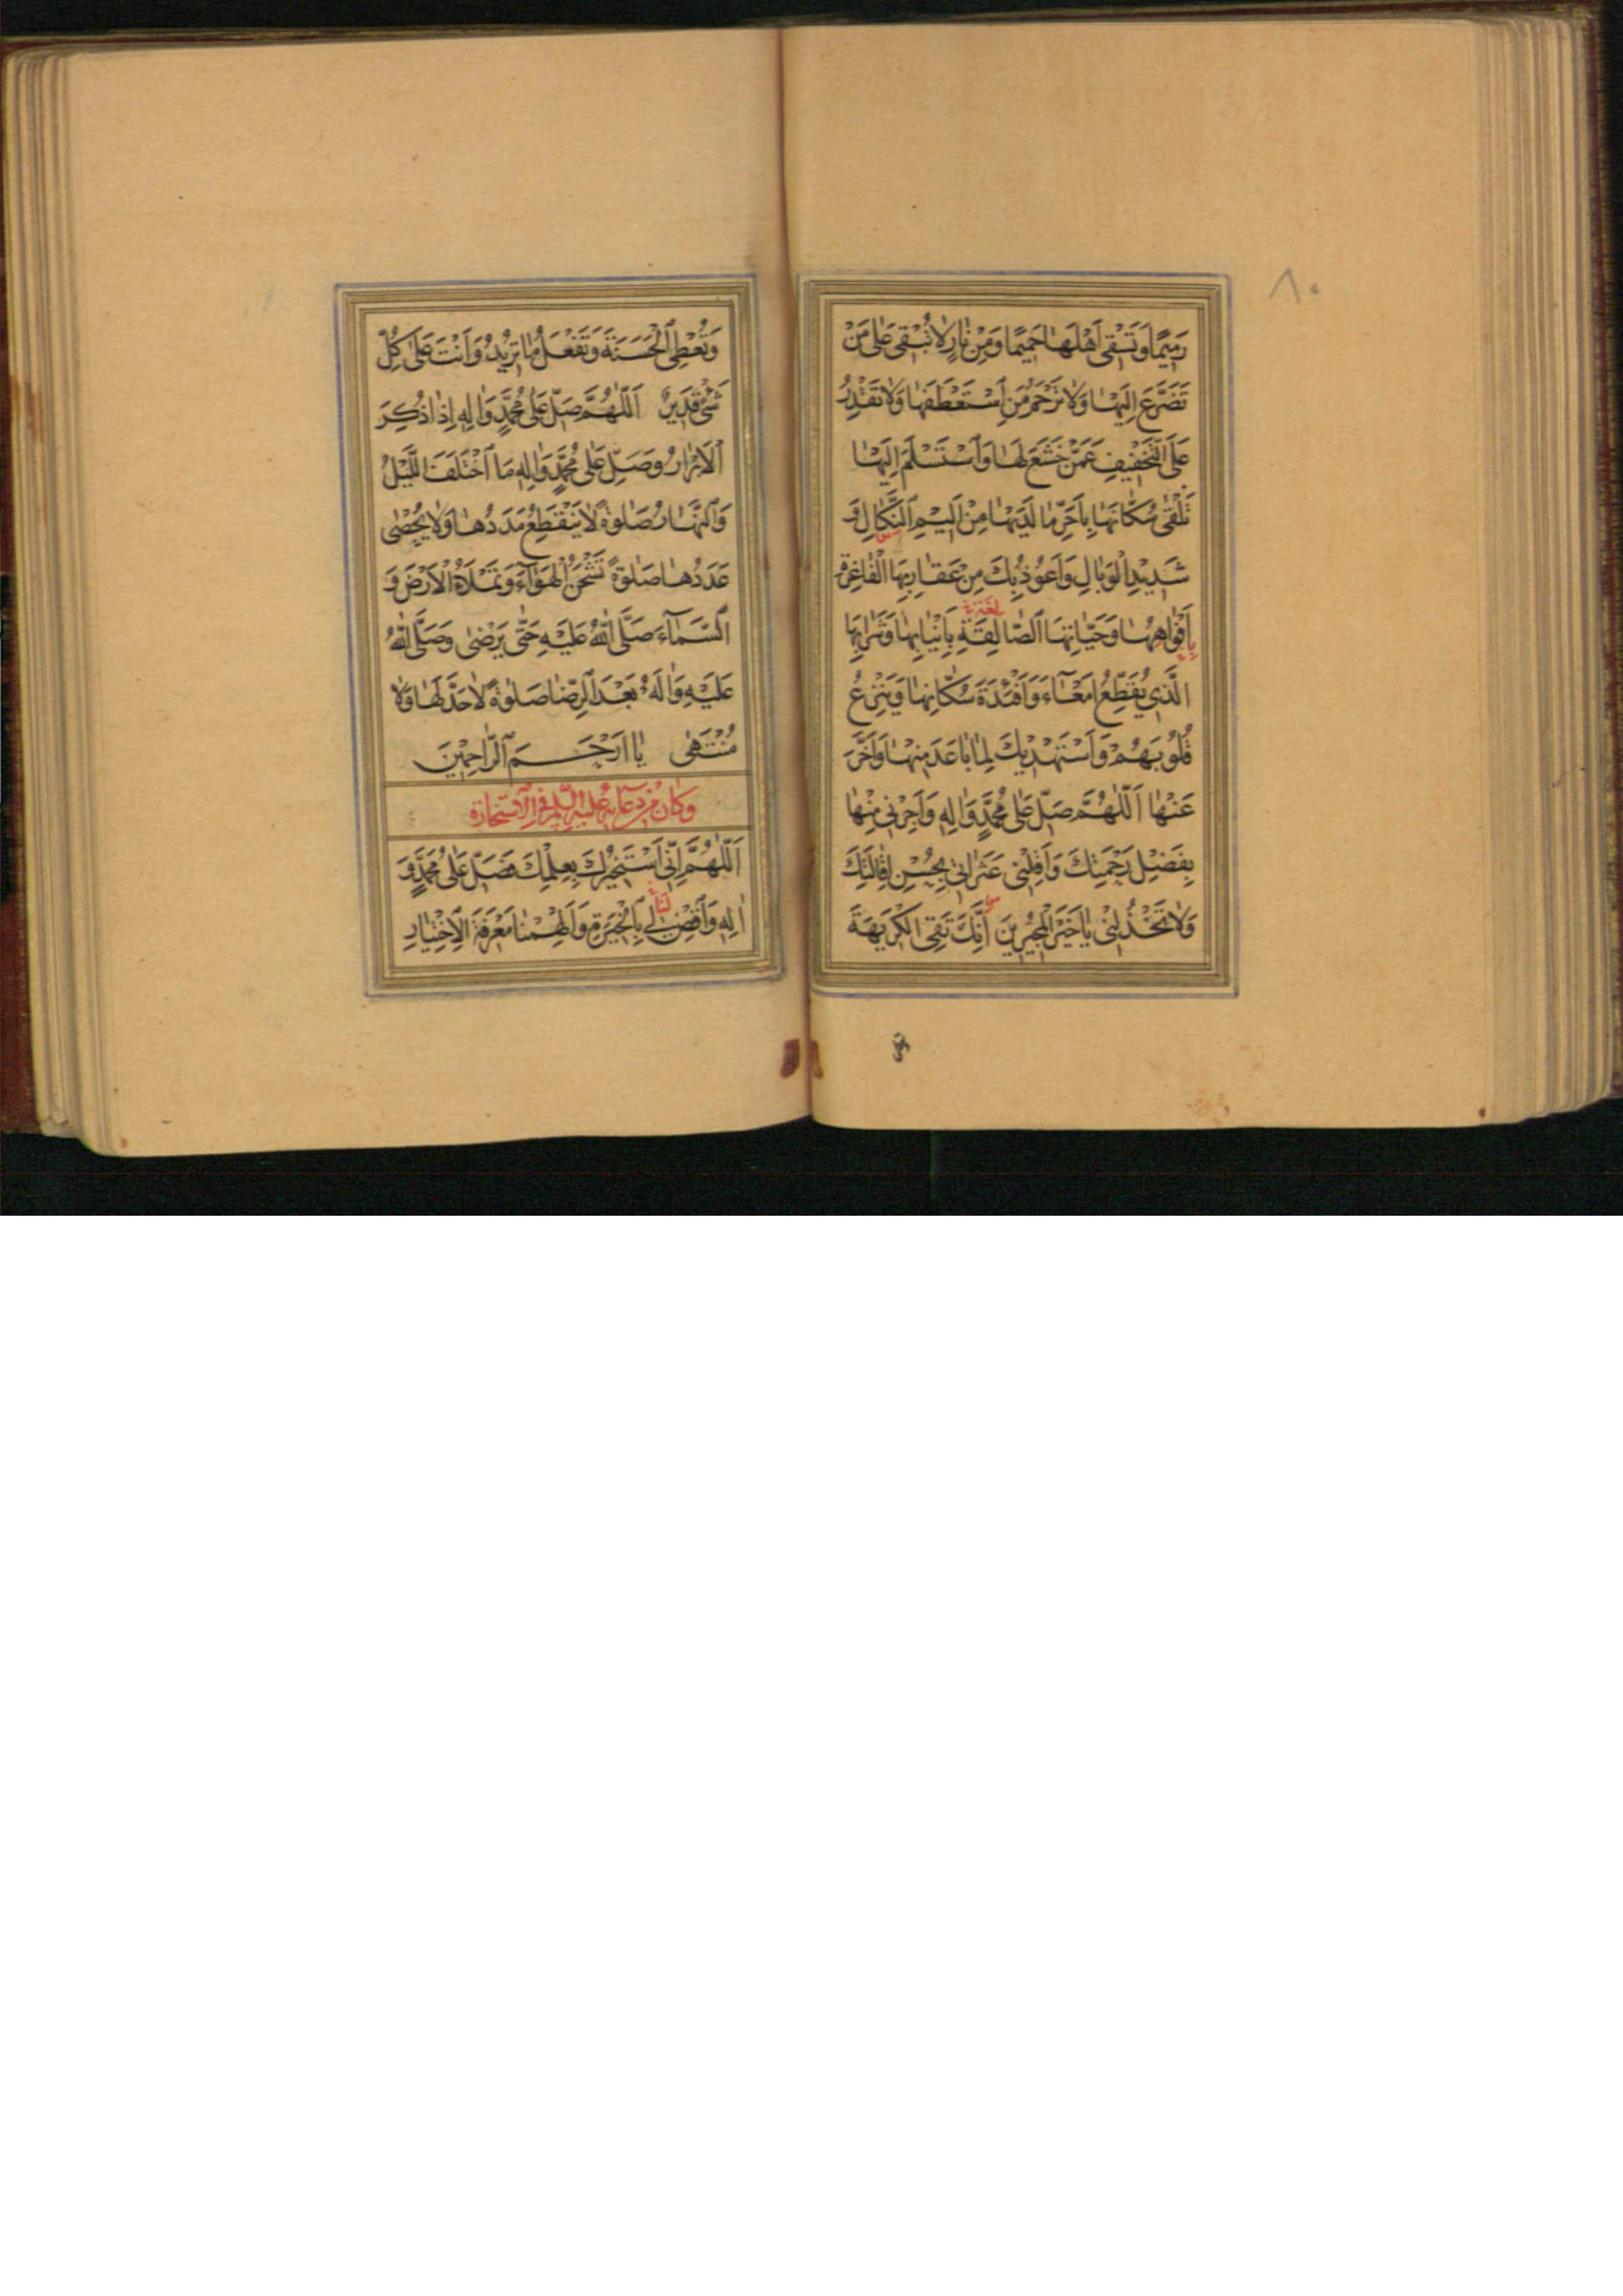 ٨٠
رَمِيمًا وَتَسْقِي أَهْلَهَا حَمِيمًا وَمِنْ نَارٍ لَا تُبْقِي عَلَىٰ مَنْ
تَضَرَّعَ إِلَيْهَا وَلَا تَرْحَمُ مَنِ اسْتَعْطَفَهَا وَلَا تَقْدِرُ
عَلَى التَّخْفِيفِ عَمَّنْ خَشَعَ لَهَا وَاسْتَسْلَمَ إِلَيْهَا
تَلْقَىٰ سُكَّانَهَا بِأَحَرِّ مَا لَدَيْهَا مِنْ أَلِيمِ النَّكَالِ وَ
شَدِيدِ الْوَبَالِ وَأَعُوذُ بِكَ مِنْ عَقَارِبِهَا الْفَاغِرَةِ
بِأَفْوَاهِهَا وَحَيَّاتِهَا الصَّالِقَةِ بِأَنْيَابِهَا وَشَرَابِهَا
الَّذِي يُقَطِّعُ أَمْعَاءَ وَأَفْئِدَةَ سُكَّانِهَا وَيَنْزِعُ
قُلُوبَهُمْ وَأَسْتَهْدِيكَ لِمَا بَاعَدَ مِنْهَا وَأَخَّرَ
عَنْهَا اَللّٰهُمَّ صَلِّ عَلَىٰ مُحَمَّدٍ وَآلِهِ وَأَجِرْنِي مِنْهَا
بِفَضْلِ رَحْمَتِكَ وَأَقِلْنِي عَثَرَاتِي بِحُسْنِ إِقَالَتِكَ
وَلَا تَخْذُلْنِي يَا خَيْرَ الْمُجِيرِينَ إِنَّكَ تَقِي الْكَرِيهَةَ
وَتُعْطِي الْحَسَنَةَ وَتَفْعَلُ مَا تُرِيدُ وَأَنْتَ عَلَىٰ كُلِّ
شَيْءٍ قَدِيرٌ اَللّٰهُمَّ صَلِّ عَلَىٰ مُحَمَّدٍ وَآلِهِ إِذَا ذُكِرَ
الْأَبْرَارُ وَصَلِّ عَلَىٰ مُحَمَّدٍ وَآلِهِ مَا اخْتَلَفَ اللَّيْلُ
وَالنَّهَارُ صَلٰوةً لَا يَنْقَطِعُ مَدَدُهَا وَلَا يُحْصَىٰ
عَدَدُهَا صَلٰوةً تَشْحَنُ الْهَوَاءَ وَتَمْلَأُ الْأَرْضَ وَ
السَّمَاءَ صَلَّى اللّٰهُ عَلَيْهِ حَتَّىٰ يَرْضَىٰ وَصَلَّى اللّٰهُ
عَلَيْهِ وَآلِهِ بَعْدَ الرِّضَا صَلٰوةً لَا حَدَّ لَهَا وَلَا
مُنْتَهَىٰ يَا أَرْحَمَ الرَّاحِمِينَ
وَكَانَ مِنْ دُعَائِهِ عَلَيْهِ السَّلَامُ فِي الْاِسْتِخَارَةِ
اَللّٰهُمَّ إِنِّي أَسْتَخِيرُكَ بِعِلْمِكَ فَصَلِّ عَلَىٰ مُحَمَّدٍ وَ
آلِهِ وَاقْضِ لِي بِالْخِيَرَةِ وَأَلْهِمْنَا مَعْرِفَةَ الْاِخْتِيَارِ